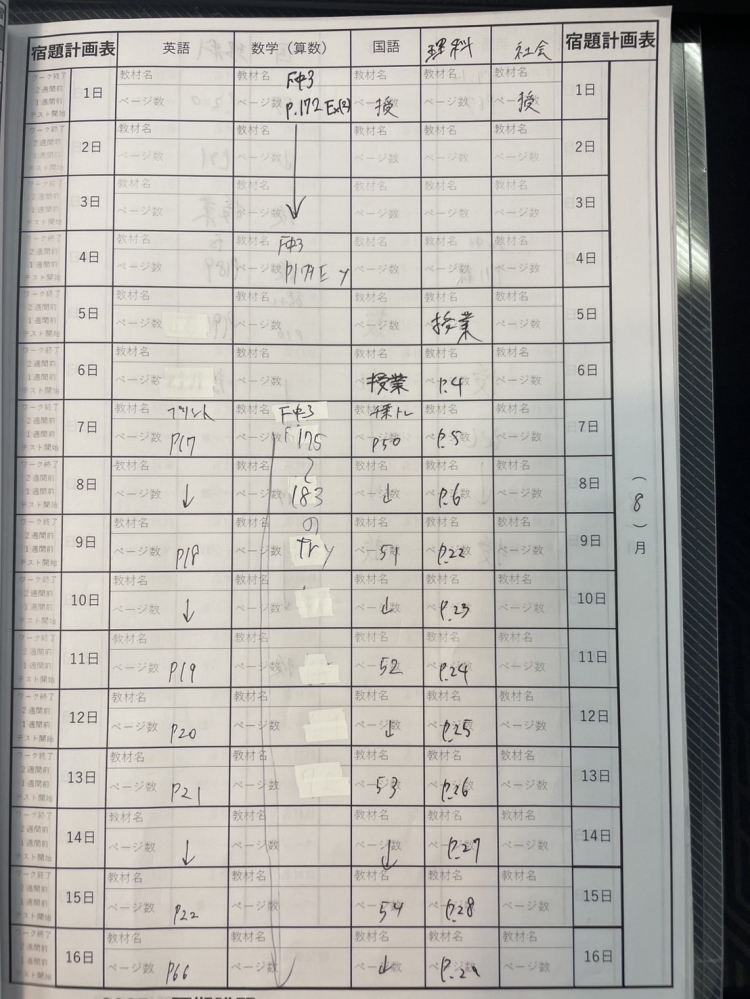 宿題計画表 英語 数学（算数） 国語 理科 社会 宿題計画表
ワーク終了 2週間前 1週間前 テスト開始
1日 教材名 教材名 F中3 教材名 教材名 教材名 1日
ページ数 ページ数 P.172 Ex(2) ページ数 授 ページ数 ページ数 授
ワーク終了 2週間前 1週間前 テスト開始
2日 教材名 教材名 教材名 教材名 教材名 2日
ページ数 ページ数 ↓ ページ数 ページ数 ページ数
ワーク終了 2週間前 1週間前 テスト開始
3日 教材名 教材名 教材名 教材名 教材名 3日
ページ数 ページ数 ページ数 ページ数 ページ数
ワーク終了 2週間前 1週間前 テスト開始
4日 教材名 教材名 F中3 教材名 教材名 教材名 4日
ページ数 ページ数 ページ数 ページ数 ページ数
ワーク終了 2週間前 1週間前 テスト開始
5日 教材名 教材名 教材名 教材名 教材名 5日
ページ数 ページ数 ページ数 ページ数 授業 ページ数
ワーク終了 2週間前 1週間前 テスト開始
6日 教材名 教材名 教材名 教材名 教材名 6日
ページ数 ページ数 ページ数 授業 ページ数 P.4 ページ数
ワーク終了 2週間前 1週間前 テスト開始
7日 教材名 プリント 教材名 F中3 教材名 教材名 教材名 7日
ページ数 P17 ページ数 175 ページ数 P50 ページ数 P.5 ページ数
ワーク終了 2週間前 1週間前 テスト開始
8日 教材名 教材名 〜 教材名 教材名 教材名 8日
ページ数 ↓ ページ数 183 ページ数 ↓ ページ数 P.6 ページ数
ワーク終了 2週間前 1週間前 テスト開始
9日 教材名 教材名 の 教材名 教材名 教材名 9日
ページ数 P18 ページ数 try ページ数 51 ページ数 P.22 ページ数
ワーク終了 2週間前 1週間前 テスト開始
10日 教材名 教材名 教材名 教材名 教材名 10日
ページ数 ↓ ページ数 ページ数 ↓ ページ数 P.23 ページ数
ワーク終了 2週間前 1週間前 テスト開始
11日 教材名 教材名 教材名 教材名 教材名 11日
ページ数 P19 ページ数 ページ数 52 ページ数 P.24 ページ数
ワーク終了 2週間前 1週間前 テスト開始
12日 教材名 教材名 教材名 教材名 教材名 12日
ページ数 P20 ページ数 ページ数 ↓ ページ数 P.25 ページ数
ワーク終了 2週間前 1週間前 テスト開始
13日 教材名 教材名 教材名 教材名 教材名 13日
ページ数 P21 ページ数 ページ数 53 ページ数 P.26 ページ数
ワーク終了 2週間前 1週間前 テスト開始
14日 教材名 教材名 教材名 教材名 教材名 14日
ページ数 ↓ ページ数 ページ数 ↓ ページ数 P.27 ページ数
ワーク終了 2週間前 1週間前 テスト開始
15日 教材名 教材名 教材名 教材名 教材名 15日
ページ数 P22 ページ数 ページ数 54 ページ数 P.28 ページ数
ワーク終了 2週間前 1週間前 テスト開始
16日 教材名 教材名 教材名 教材名 教材名 16日
ページ数 P66 ページ数 ページ数 ↓ ページ数 ページ数
（8）月